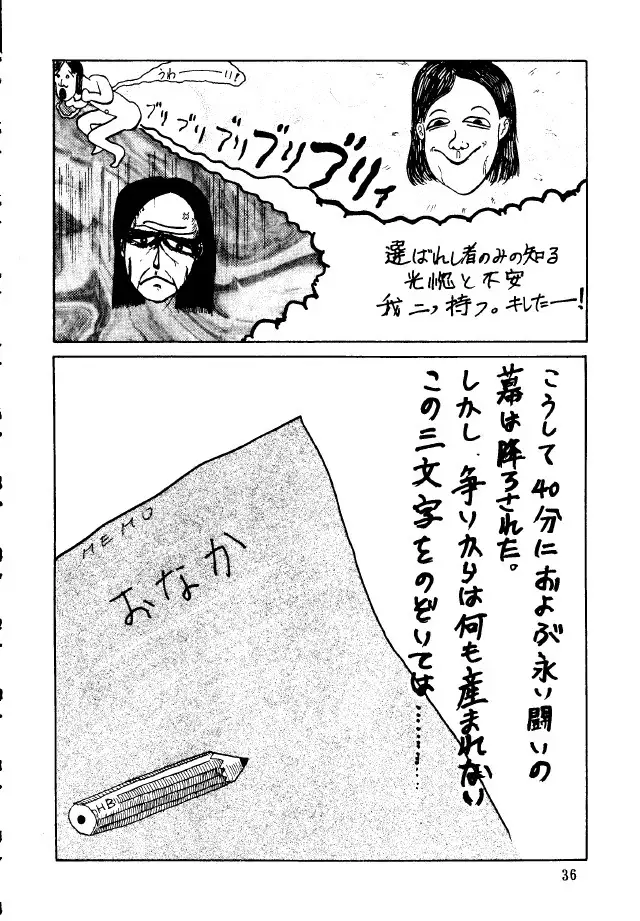 うわ――!!
ブリブリブリブリブリィ
選ばれし者のみの知る
光惚と不安
我二つ持つ。キしたー!
こうして40分におよぶ永い闘いの
幕は降ろされた。
しかし、争いからは何も産まれない
この三文字をのぞいては…………
MEMO
おなか
HB
36